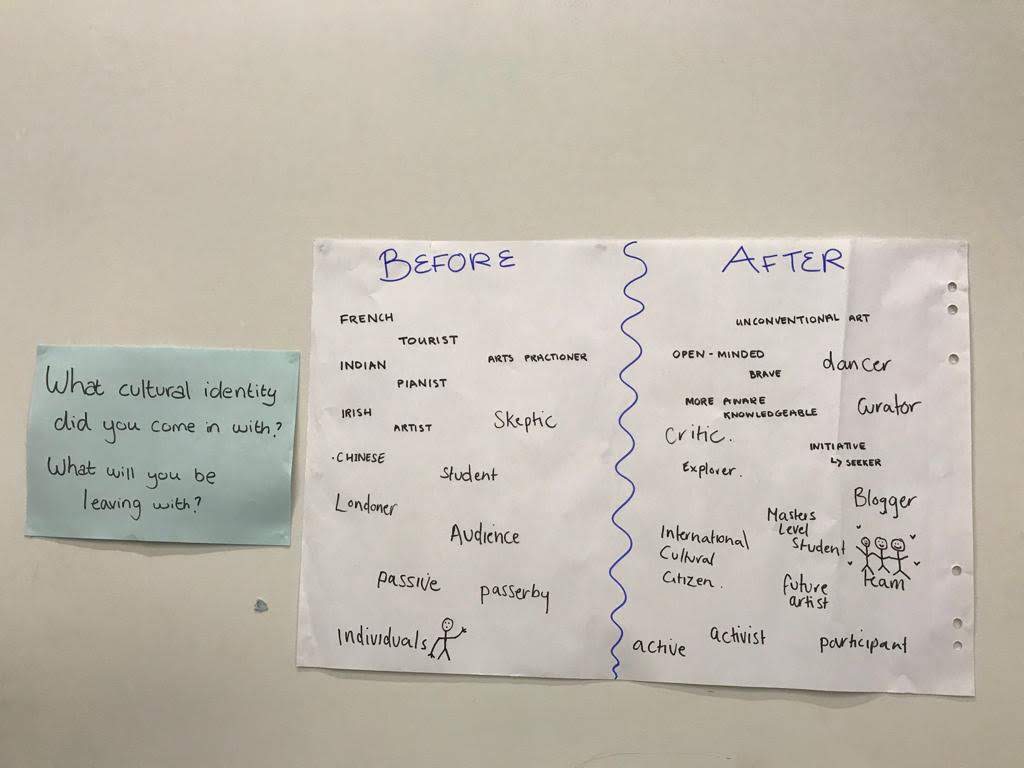 What cultural identity
did you come in with?
What will you be
leaving with?
BEFORE
FRENCH
TOURIST
INDIAN
ARTS PRACTIONER
PIANIST
IRISH
ARTIST
Skeptic
·CHINESE
Student
Londoner
Audience
passive
passerby
Individuals
AFTER
UNCONVENTIONAL ART
OPEN-MINDED
BRAVE
dancer
MORE AWARE
KNOWLEDGEABLE
Curator
Critic.
INITIATIVE
↳ SEEKER
Explorer.
Blogger
Masters
Level
Student
International
Cultural
Citizen.
team
future
artist
active
activist
participant